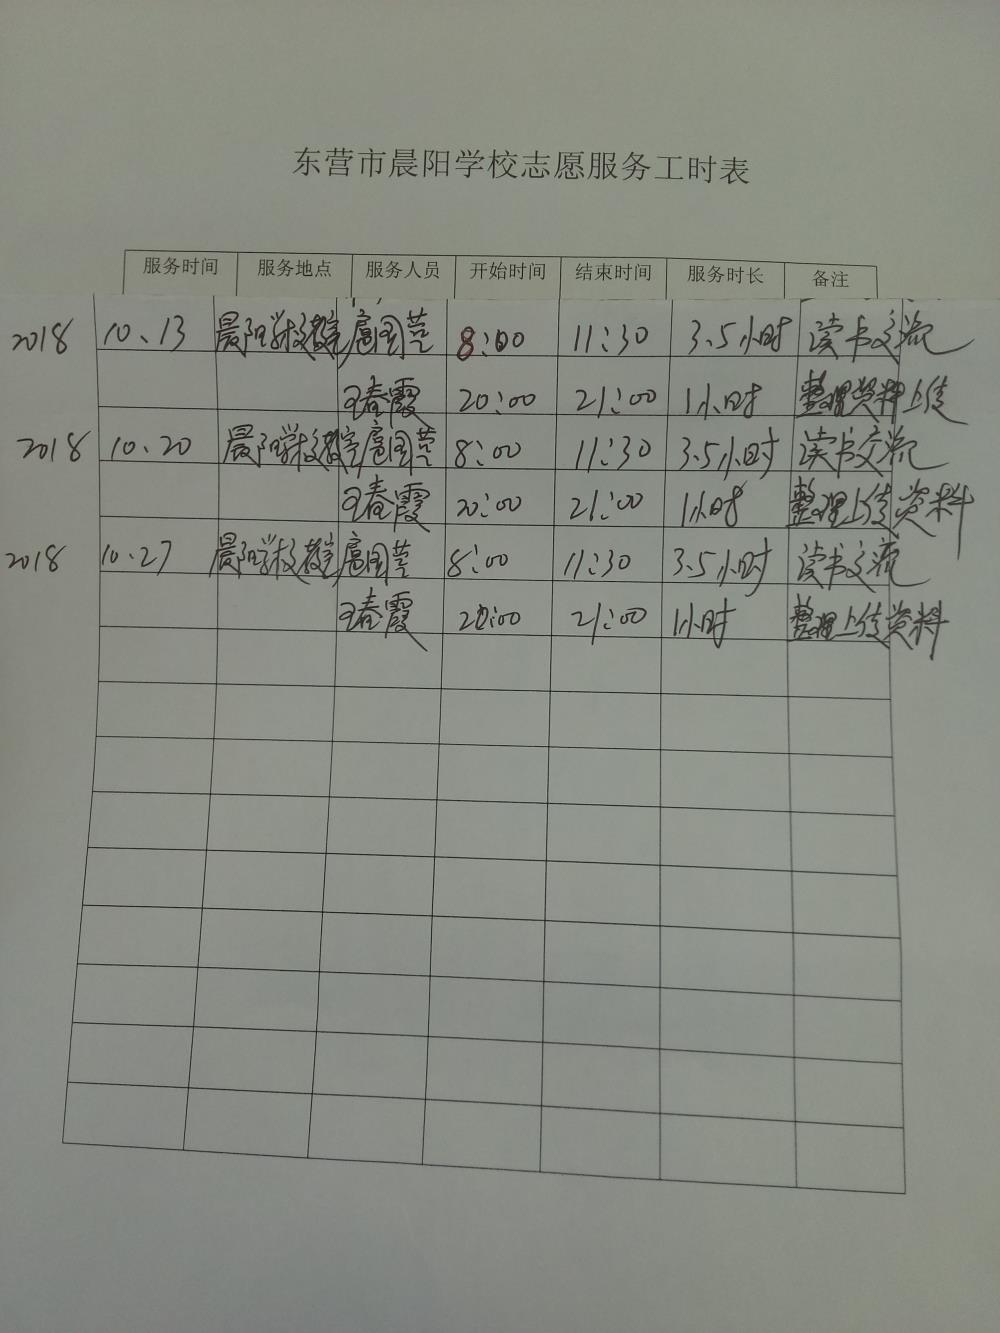 东营市晨阳学校志愿服务工时表
服务时间 服务地点 服务人员 开始时间 结束时间 服务时长 备注
2018 10、13 晨阳学校教室 扈国芸 8:00 11:30 3.5小时 读书交流
王春霞 20:00 21:00 1小时 整理资料上传
2018 10、20 晨阳学校教室 扈国芸 8:00 11:30 3.5小时 读书交流
王春霞 20:00 21:00 1小时 整理上传资料
2018 10.27 晨阳学校教室 扈国芸 8:00 11:30 3.5小时 读书交流
王春霞 20:00 21:00 1小时 整理上传资料